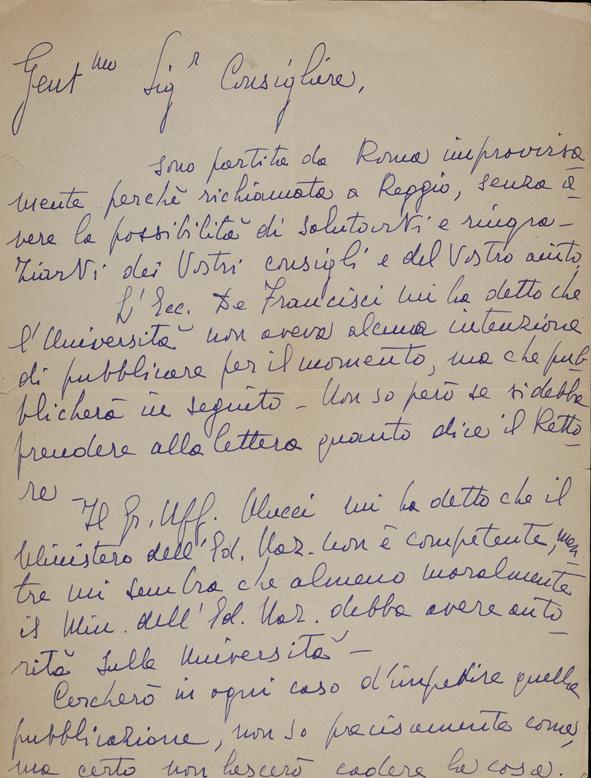 Gent^mo Sig^r Consigliere,
sono partita da Roma improvvisa
mente perchè richiamata a Reggio, senza a_
vere la possibilità di salutarVi e ringra_
ziarVi dei Vostri consigli e del Vostro aiuto.
L'Ecc. De Francisci mi ha detto che
l'Università non aveva alcuna intenzione
di pubblicare per il momento, ma che pub_
blicherà in seguito _ Non so però se si debba
prendere alla lettera quanto dice il Retto_
re _
Il Gr. Uff. mi ha detto che il
Ministero dell'Ed. Naz. non è competente, men_
tre mi sembra che almeno moralmente
il Min. dell'Ed. Naz. debba avere auto_
rità sulla Università _
Cercherò in ogni caso d'impedire quella
pubblicazione, non so precisamente come,
ma certo non lascerò cadere la cosa.